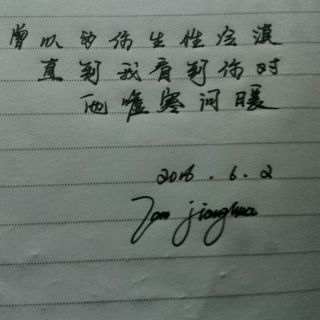 曾以为你生性冷漠
直到我看到你对
他嘘寒问暖
2016.6.2